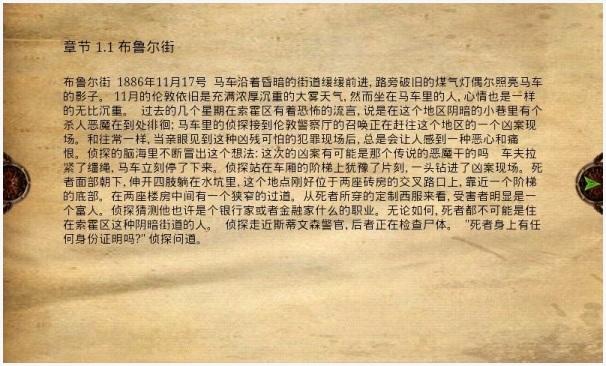 章节 1.1 布鲁尔街
布鲁尔街  1886年11月17号  马车沿着昏暗的街道缓缓前进, 路旁破旧的煤气灯偶尔照亮马车
的影子。 11月的伦敦依旧是充满浓厚沉重的大雾天气, 然而坐在马车里的人, 心情也是一样
的无比沉重。  过去的几个星期在索霍区有着恐怖的流言, 说是在这个地区阴暗的小巷里有个
杀人恶魔在到处徘徊; 马车里的侦探接到伦敦警察厅的召唤正在赶往这个地区的一个凶案现
场。和往常一样, 当亲眼见到这种凶残可怕的犯罪现场后, 总是会让人感到一种恶心和痛
恨。侦探的脑海里不断冒出这个想法: 这次的凶案有可能是那个传说的恶魔干的吗   车夫拉
紧了缰绳, 马车立刻停了下来。侦探站在车厢的阶梯上犹豫了片刻, 一头钻进了凶案现场。死
者面部朝下, 伸开四肢躺在水坑里, 这个地点刚好位于两座砖房的交叉路口上, 靠近一个阶梯
的底部。在两座楼房中间有一个狭窄的过道。从死者所穿的定制西服来看, 受害者明显是一
个富人。侦探猜测他也许是个银行家或者金融家什么的职业。无论如何, 死者都不可能是住
在索霍区这种阴暗街道的人。  侦探走近斯蒂文森警官, 后者正在检查尸体。  “死者身上有任
何身份证明吗?” 侦探问道。